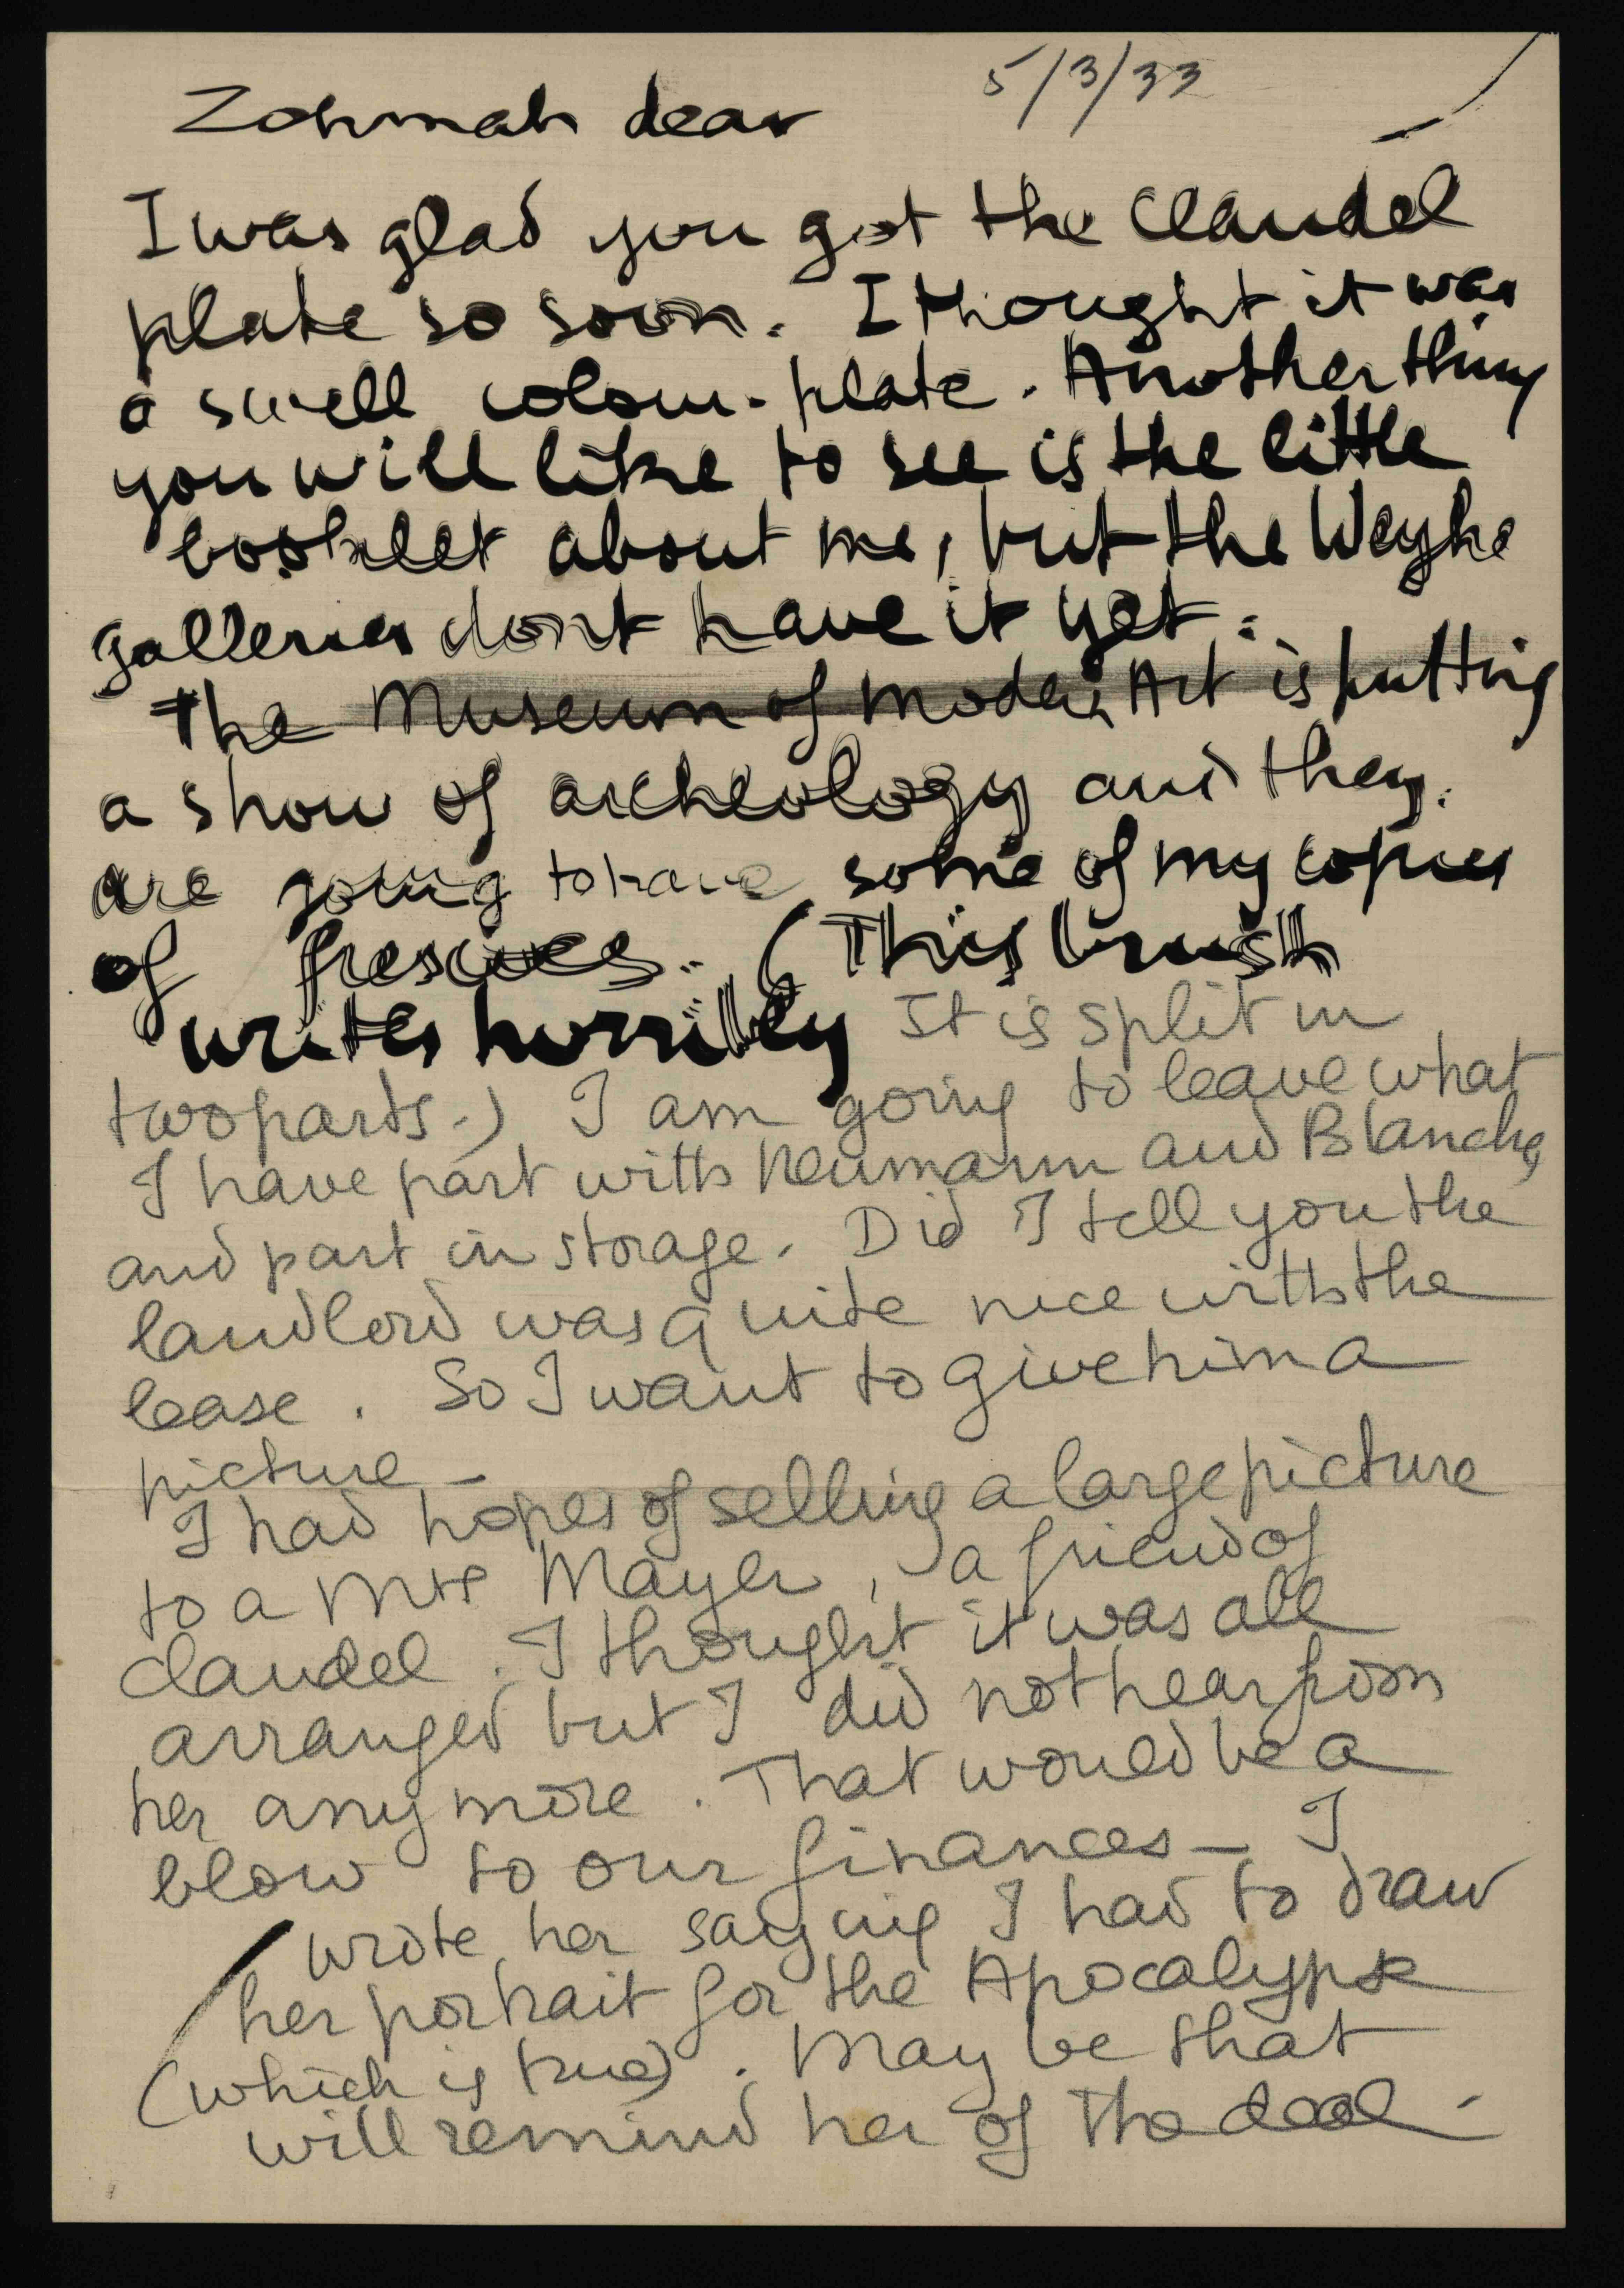 5/3/33
Zohmah dear
I was glad you got the Claudel
plate so soon. I thought it was
a swell colour-plate. Another thing
you will like to see is the little
booklet about me, but the Weyhe
galleries dont have it yet.
The Museum of Modern Art is putting
a show of archeology and they
are going to have some of my copies
of frescoes. (This brush
writes horribly It is split in
two parts.) I am going to leave what
I have part with Neumann and Blanche,
and part in storage. Did I tell you the
landlord was quite nice with the
lease. So I want to give him a
picture –
I had hopes of selling a large picture
to a Mrs Mayer, a friend of
Claudel. I thought it was all
arranged but I did not hear from
her any more. That would be a
blow to our finances – I
wrote her saying I had to draw
her portrait for the Apocalypse
(which is true). May be that
will remind her of the deal –